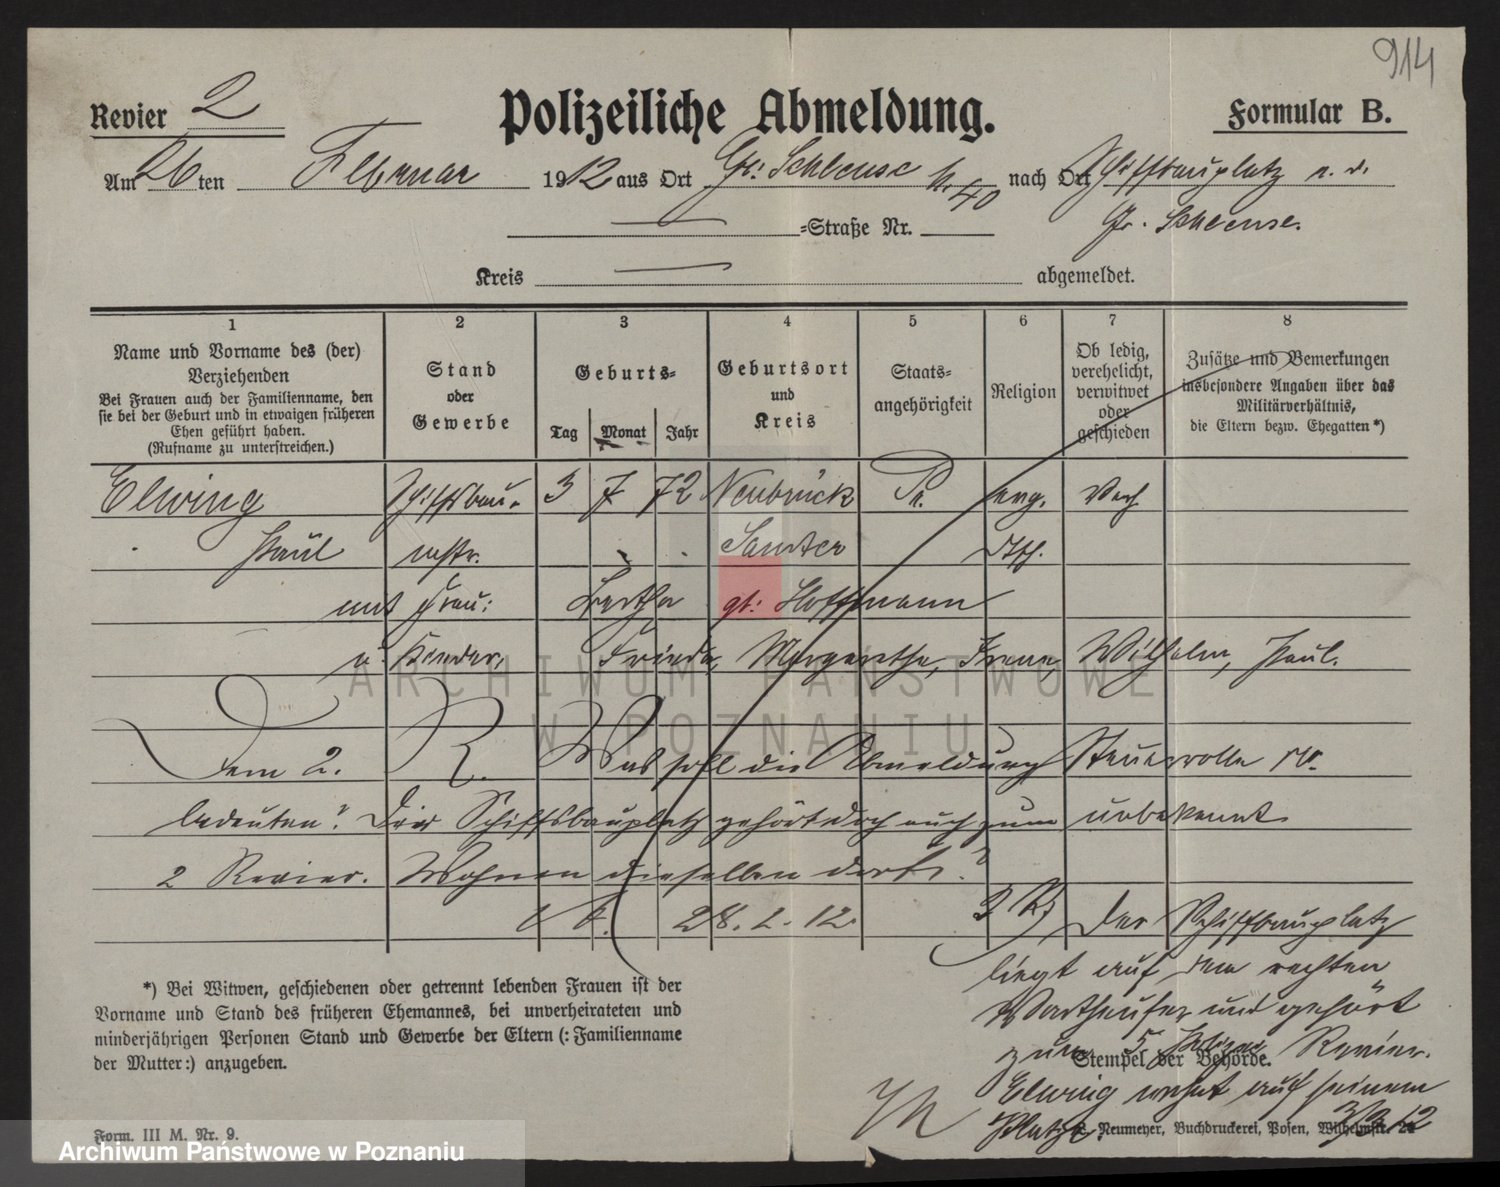 914
Revier 2
Polizeiliche Abmeldung.
Formular B.
Am 26 ten Februar 1912 aus Ort Gr. Schleuse N. 40 nach Ort Schiffbauplatz a. d.
=Straße Nr.
Gr. Schleuse.
Kreis abgemeldet.
1 2 3 4 5 6 7 8
Name und Vorname des (der) Verziehenden
Bei Frauen auch der Familienname, den sie bei der Geburt und in etwaigen früheren Ehen geführt haben.
(Rufname zu unterstreichen.)
Stand oder Gewerbe
Geburts=
Tag Monat Jahr
Geburtsort und Kreis
Staats=angehörigkeit
Religion
Ob ledig, verehelicht, verwitwet oder geschieden
Zusätze und Bemerkungen
insbesondere Angaben über das Militärverhältnis,
die Eltern bezw. Ehegatten *)
Elwing Schiffbau- 3 7 72 Neubrück Pr. evg. Verh.
Paul mstr. Samter
mit Frau: Bertha gb: Hoffmann
u. Kinder, Frieda, Margarethe, Irene, Wilhelm, Paul.
Dem 2. R. Was soll die Abmeldung Steuerrolle
bedeuten? Der Schiffsbauplatz gehört doch auch zum unbekannt
2 Revier. Wohnen dieselben dort?
28. 2. 12.
Der Schiffbauplatz
liegt auf dem rechten
Wartheufer und gehört
zum 5 Polizei Revier.
Elwing wohnt auf seinem
Platze. 3/3 12
*) Bei Witwen, geschiedenen oder getrennt lebenden Frauen ist der
Vorname und Stand des früheren Ehemannes, bei unverheirateten und
minderjährigen Personen Stand und Gewerbe der Eltern (: Familienname
der Mutter:) anzugeben.
Stempel der Behörde.
Form. III M. Nr. 9.
Neumeyer, Buchdruckerei, Posen, Wilhelmstr.
ARCHIWUM PAŃSTWOWE
W POZNANIU
Archiwum Państwowe w Poznaniu